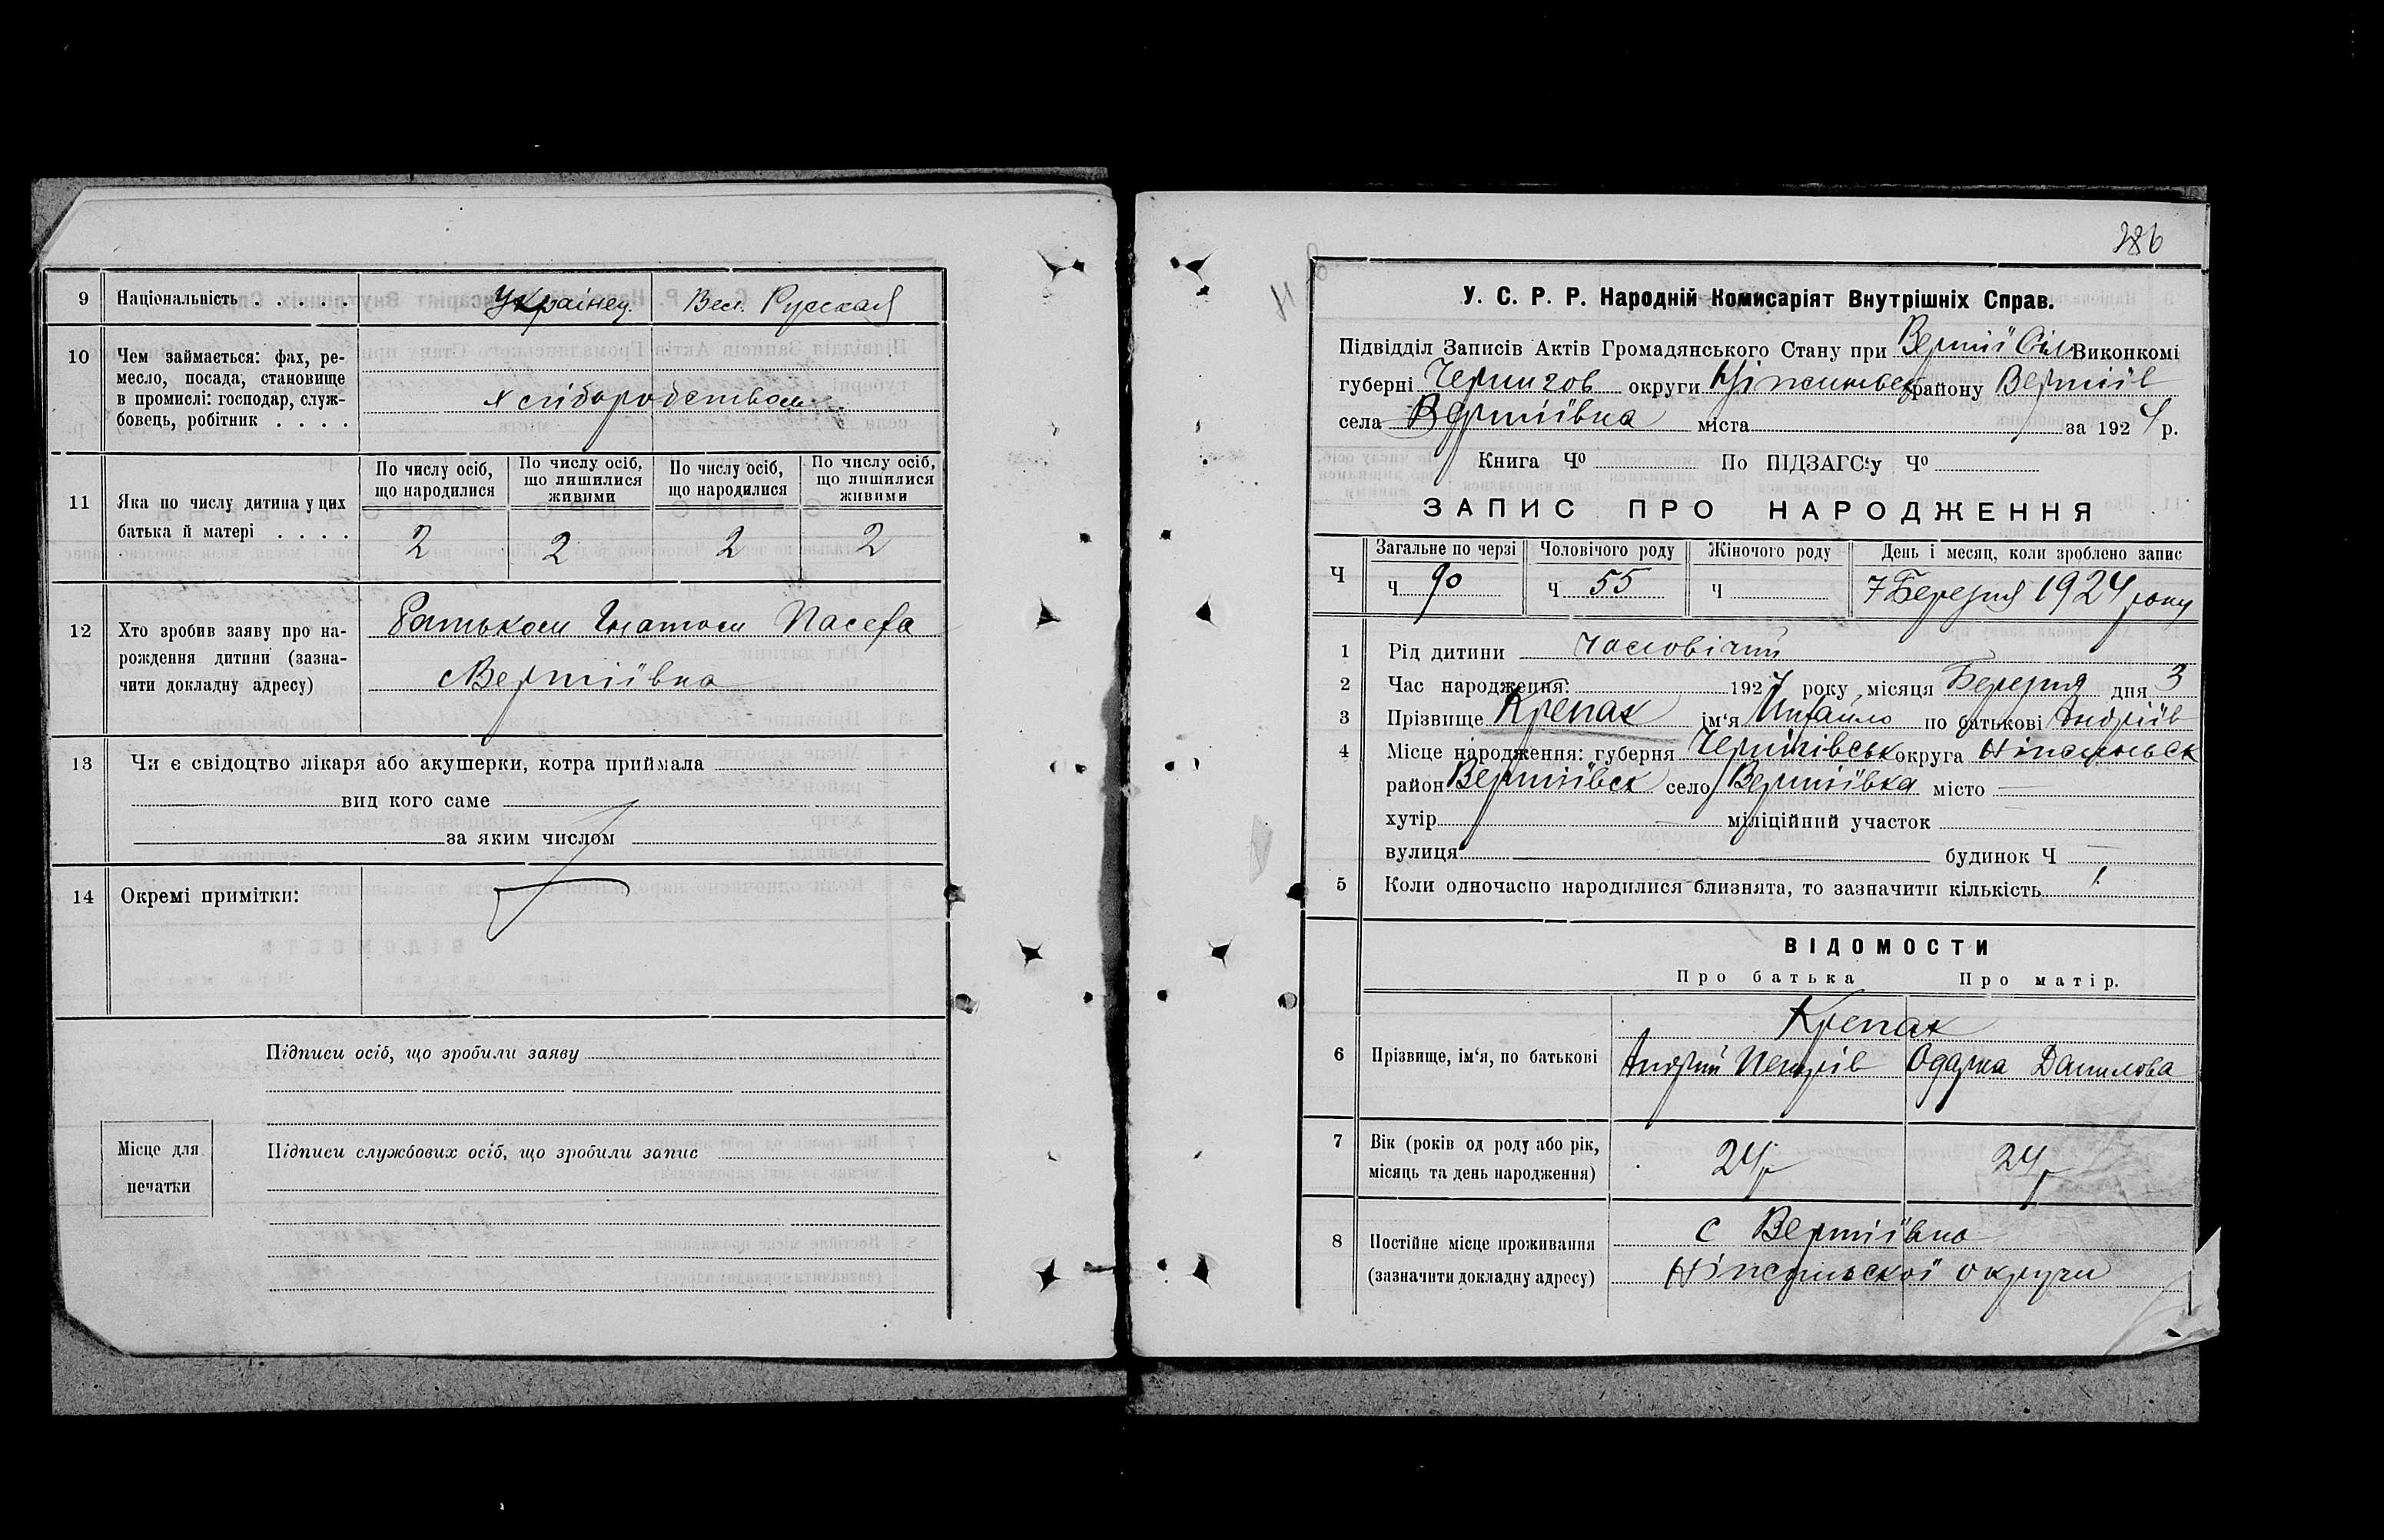 9 Національність . . . . . Українец. Вел. Русская
10 Чем займається: фах, ре-
месло, посада, становище
в промислі: господар, служ-
бовець, робітник . . . .
хліборобством
11 Яка по числу дитина у цих
батька й матері . . . .
По числу осіб, що народилися
По числу осіб, що лишилися живими
По числу осіб, що народилися
По числу осіб, що лишилися живими
2 2 2 2
12 Хто зробив заяву про на-
рождення дитини (зазна-
чити докладну адресу)
Батьком
с Вертіївка
13 Чи є свідоцтво лікаря або акушерки, котра приймала
вид кого саме
за яким числом
14 Окремі примітки:
Підписи осіб, що зробили заяву
Місце для
печатки
Підписи службових осіб, що зробили запис
286
У. С. Р. Р. Народній Комисаріят Внутрішніх Справ.
Підвідділ Записів Актів Громадянського Стану при Вертії Сіль Виконкомі
губерні Чернигов округи Ніжинськ району Вертіїв
села Вертіївка міста за 1924 р.
Книга Ч⁰ По ПІДЗАГС‘у Ч⁰
ЗАПИС ПРО НАРОДЖЕННЯ
Ч Загальне по черзі Чоловічого роду Жіночого роду День і месяц, коли зроблено запис
Ч 90 Ч 55 Ч 7 Березня 1924 року
1 Рід дитини Чоловічий
2 Час народження: 1924 року місяця Березня дня 3
3 Прізвище Крепак ім‘я Михайло по батькові Андріїв
4 Місце народження: губерня Чернігівськ округа Ніжинськ
район Вертіївск село Вертіївка місто —
хутір — міліційний участок
вулиця — будинок Ч —
5 Коли одночасно народилися близнята, то зазначити кількість 1
ВІДОМОСТИ
Про батька Про матір.
Крепак
6 Прізвище, ім‘я, по батькові Андрій Петрів Одарка Данилова
7 Вік (років од роду або рік,
місяць та день народження)
24 р 24 р
8 Постійне місце проживання
(зазначити докладну адресу)
с Вертіївка
Ніжинської округи